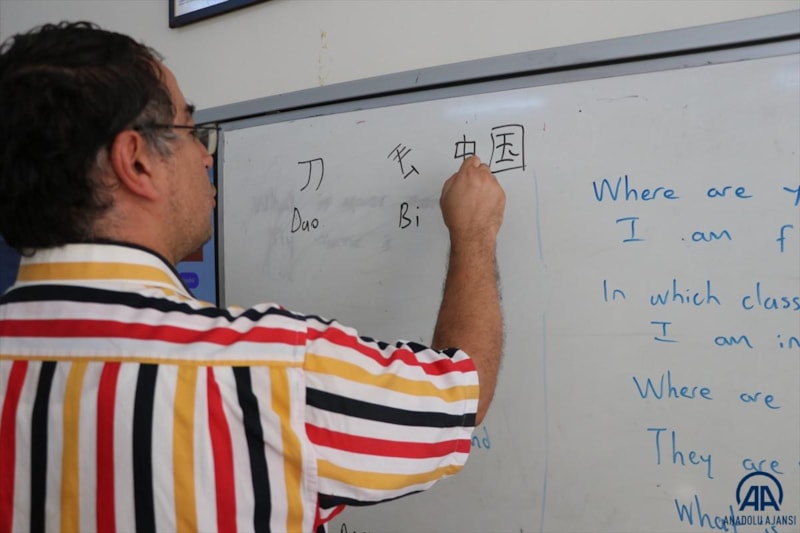 刀 毛 中国
Dao Bi
Where are
I am
In which class
I am in
Where are
They are
What is
AA
ANADOLU AJANSI